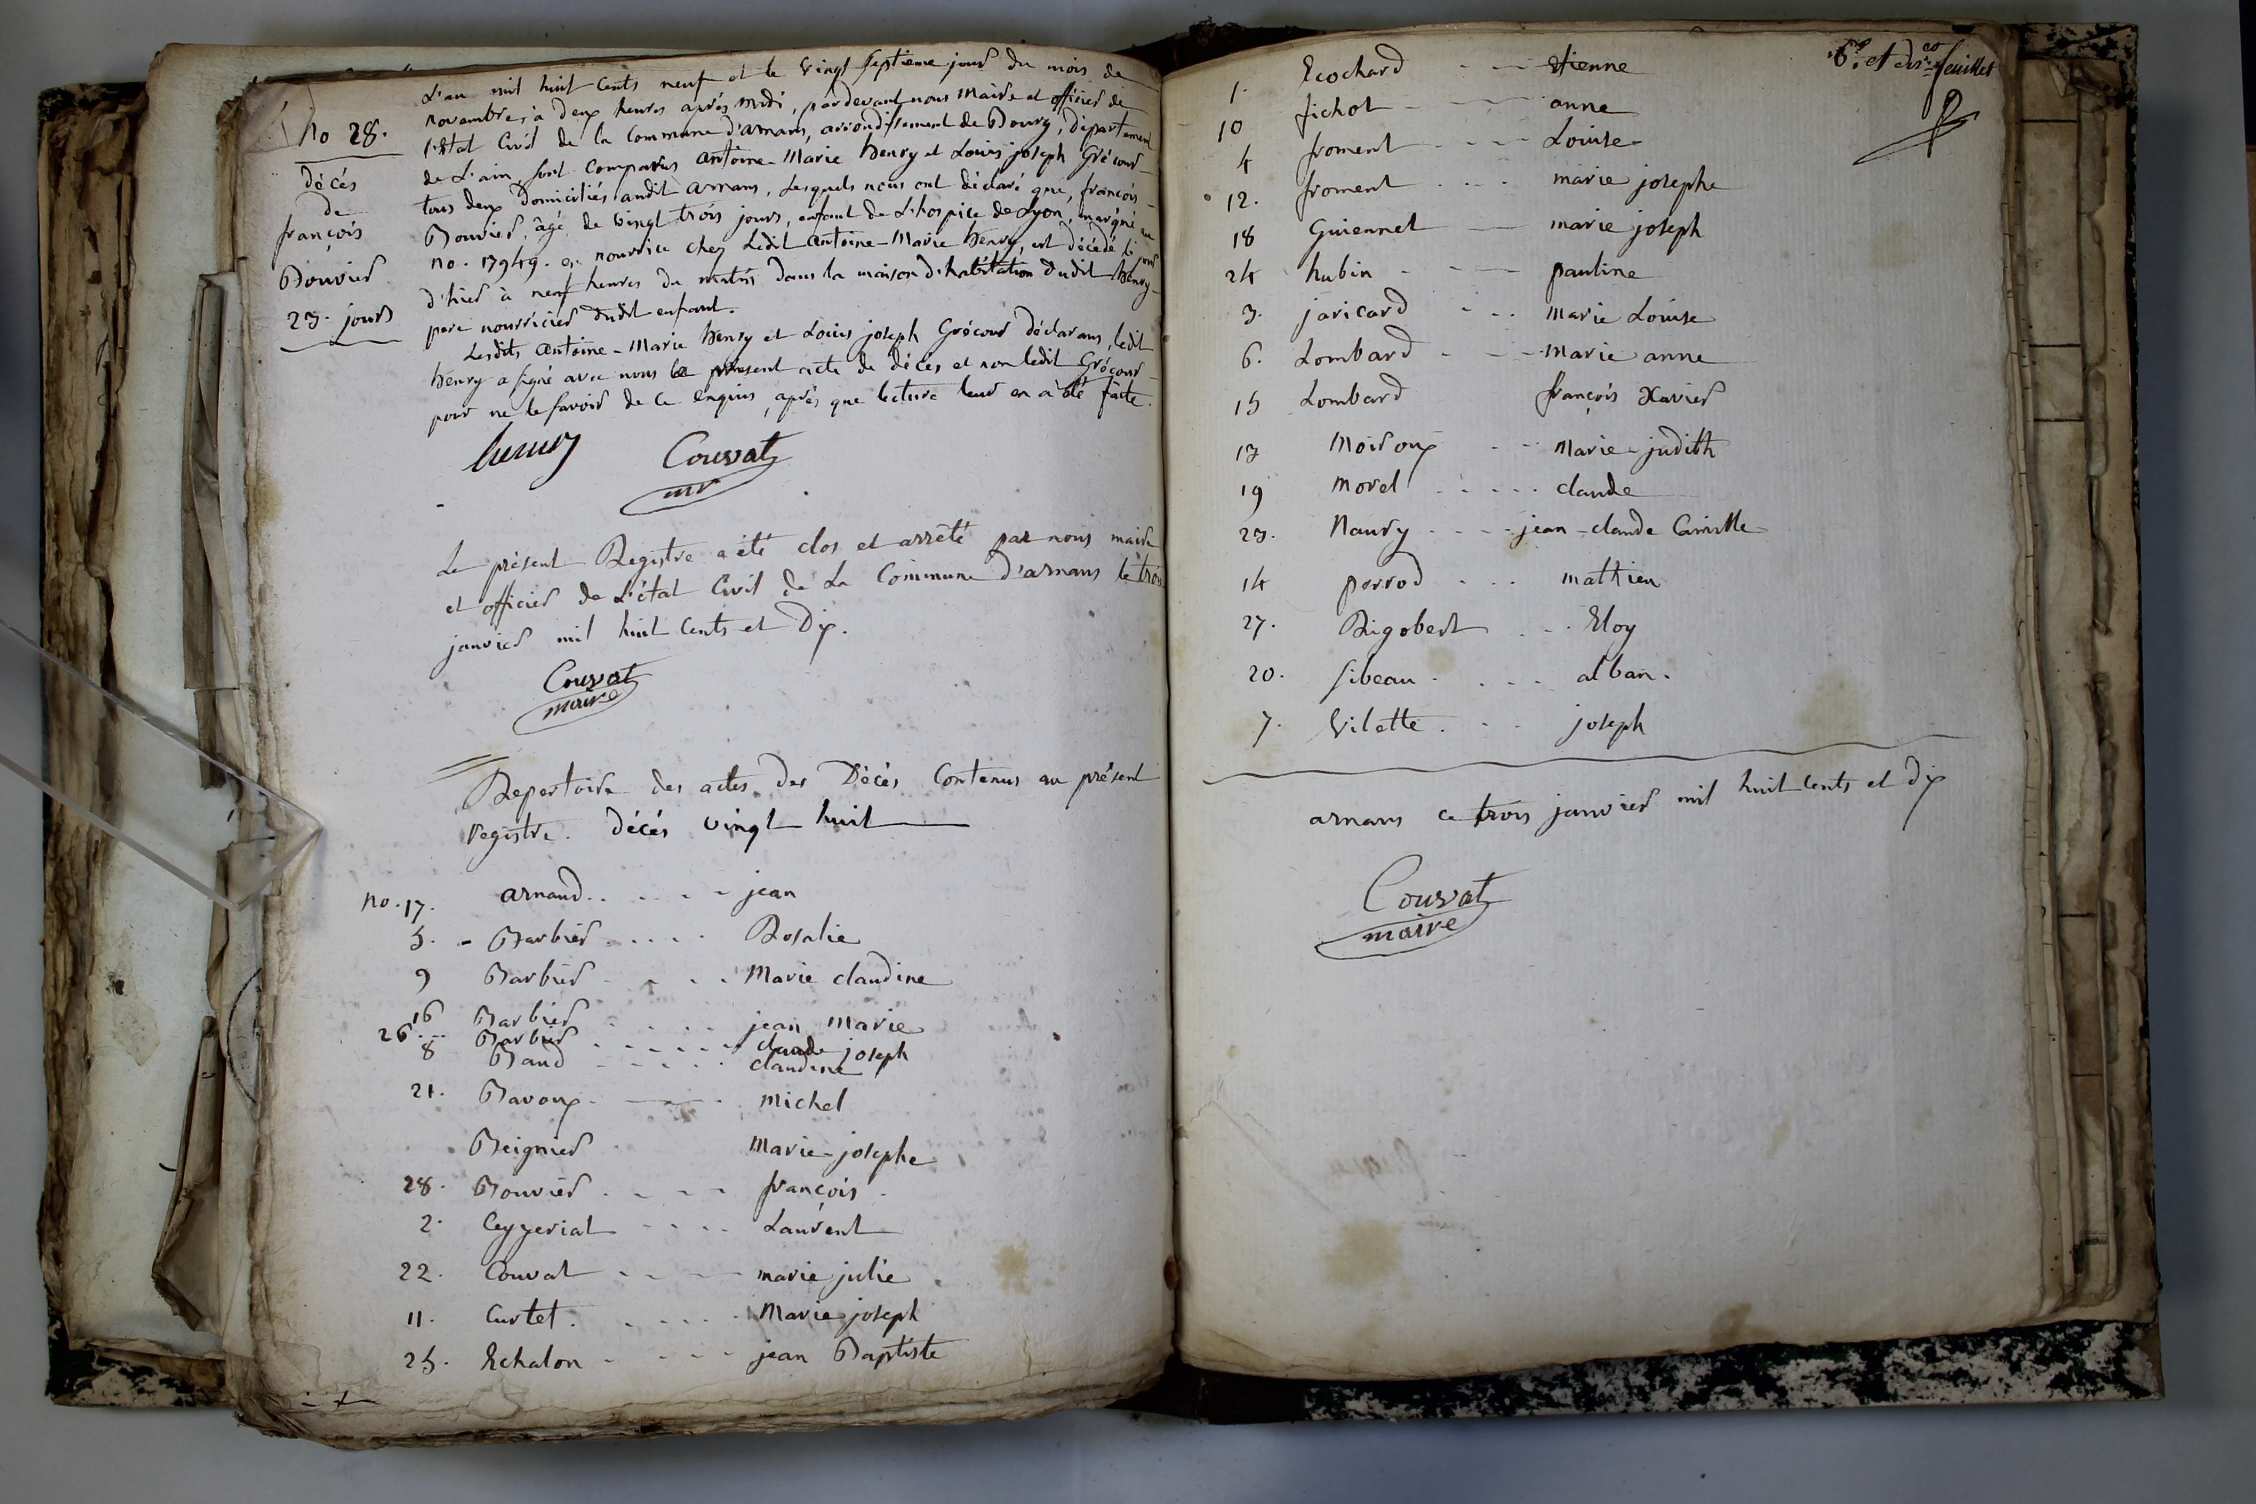 No 28.
décés
de
françois
Bouvier
23. jours
L'an mil huit cents neuf et le vingt septieme jour du mois de
novembres à deux heures aprés midi, pardevant nous Maire et officier de
l'état civil de la Commune d'arnans, arrondissement de Bourg, Département
de L'ain, sont comparus antoine-Marie henry et Louis joseph Grécour
tous deux domiciliés audit arnans, Lesquels nous ont déclaré que, françois
Bouvier, âgé de vingt trois jours, enfant de L'hospice de Lyon, marqué au
no. 17949. en nourrice chez Ledit antoine-Marie henry, est décédé le jour
d'hier à neuf heures du matin dans la maison d'habitation dudit henry
pere nourricier dudit enfant.
Lesdits antoine-Marie henry et Louis joseph Grécour déclarans, ledit
henry a signé avec nous le present acte de décés et non ledit Grécour
pour ne le savoir de ce enquis, aprés que lecture leur en a été faite.
henry Couvat
mr
Le présent Registre a été clos et arrêté par nous maire
et officier de L'état Civil de La Commune d'arnans le trois
janvier mil huit Cents et dix.
Couvat
maire
Repertoire des actes des Décés Contenus au présent
registre. décés vingt huit
no. 17. arnaud. . . . . jean
5. - Barbier . . . . Rosalie
9 Barbier . . . . Marie claudine
16 Barbier . . . . jean Marie
26. Barbier . . . . . claude joseph
8 Baud . . . . . claudine
21. Bavoux . . . michel
Beignier Marie-josephe
28. Bouvier . . . . françois .
2. Ceyzeriat . . . . Laurent
22. Couvat . . . . marie julie
11. Curtet . . . . . Marie joseph
25. Echalon . . . . jean Baptiste
6e. et der. feuillet
1. Ecochard . . . Etienne
10 fichot . . . anne
4 froment . . . . Louise
12. froment . . . . marie josephe
18 Guiennet marie joseph
24 hubin . . . pauline
3. jaricard . . . marie Louise
6. Lombard . . . marie anne
15 Lombard françois Xavier
13 Moiroux . . Marie-judith
19 morel . . . . . claude
23. Naury . . . . jean-claude Camille
14 perrod . . . mathieu
27. Rigobert . . . Eloy
20. sibeau . . . . alban.
7. Vilette . . . joseph
arnans ce trois janvier mil huit cents et dix
Couvat
maire